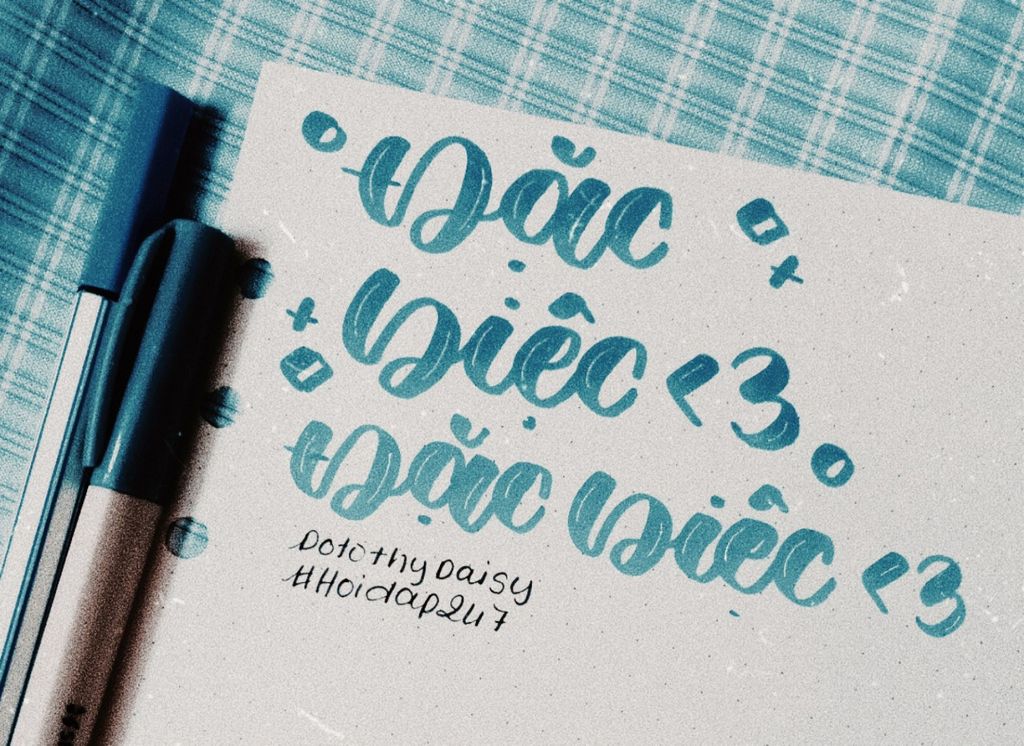 Đặc
Diệc <3
Đặc Diệc <3
DorothyDaisy
#Hoidap247